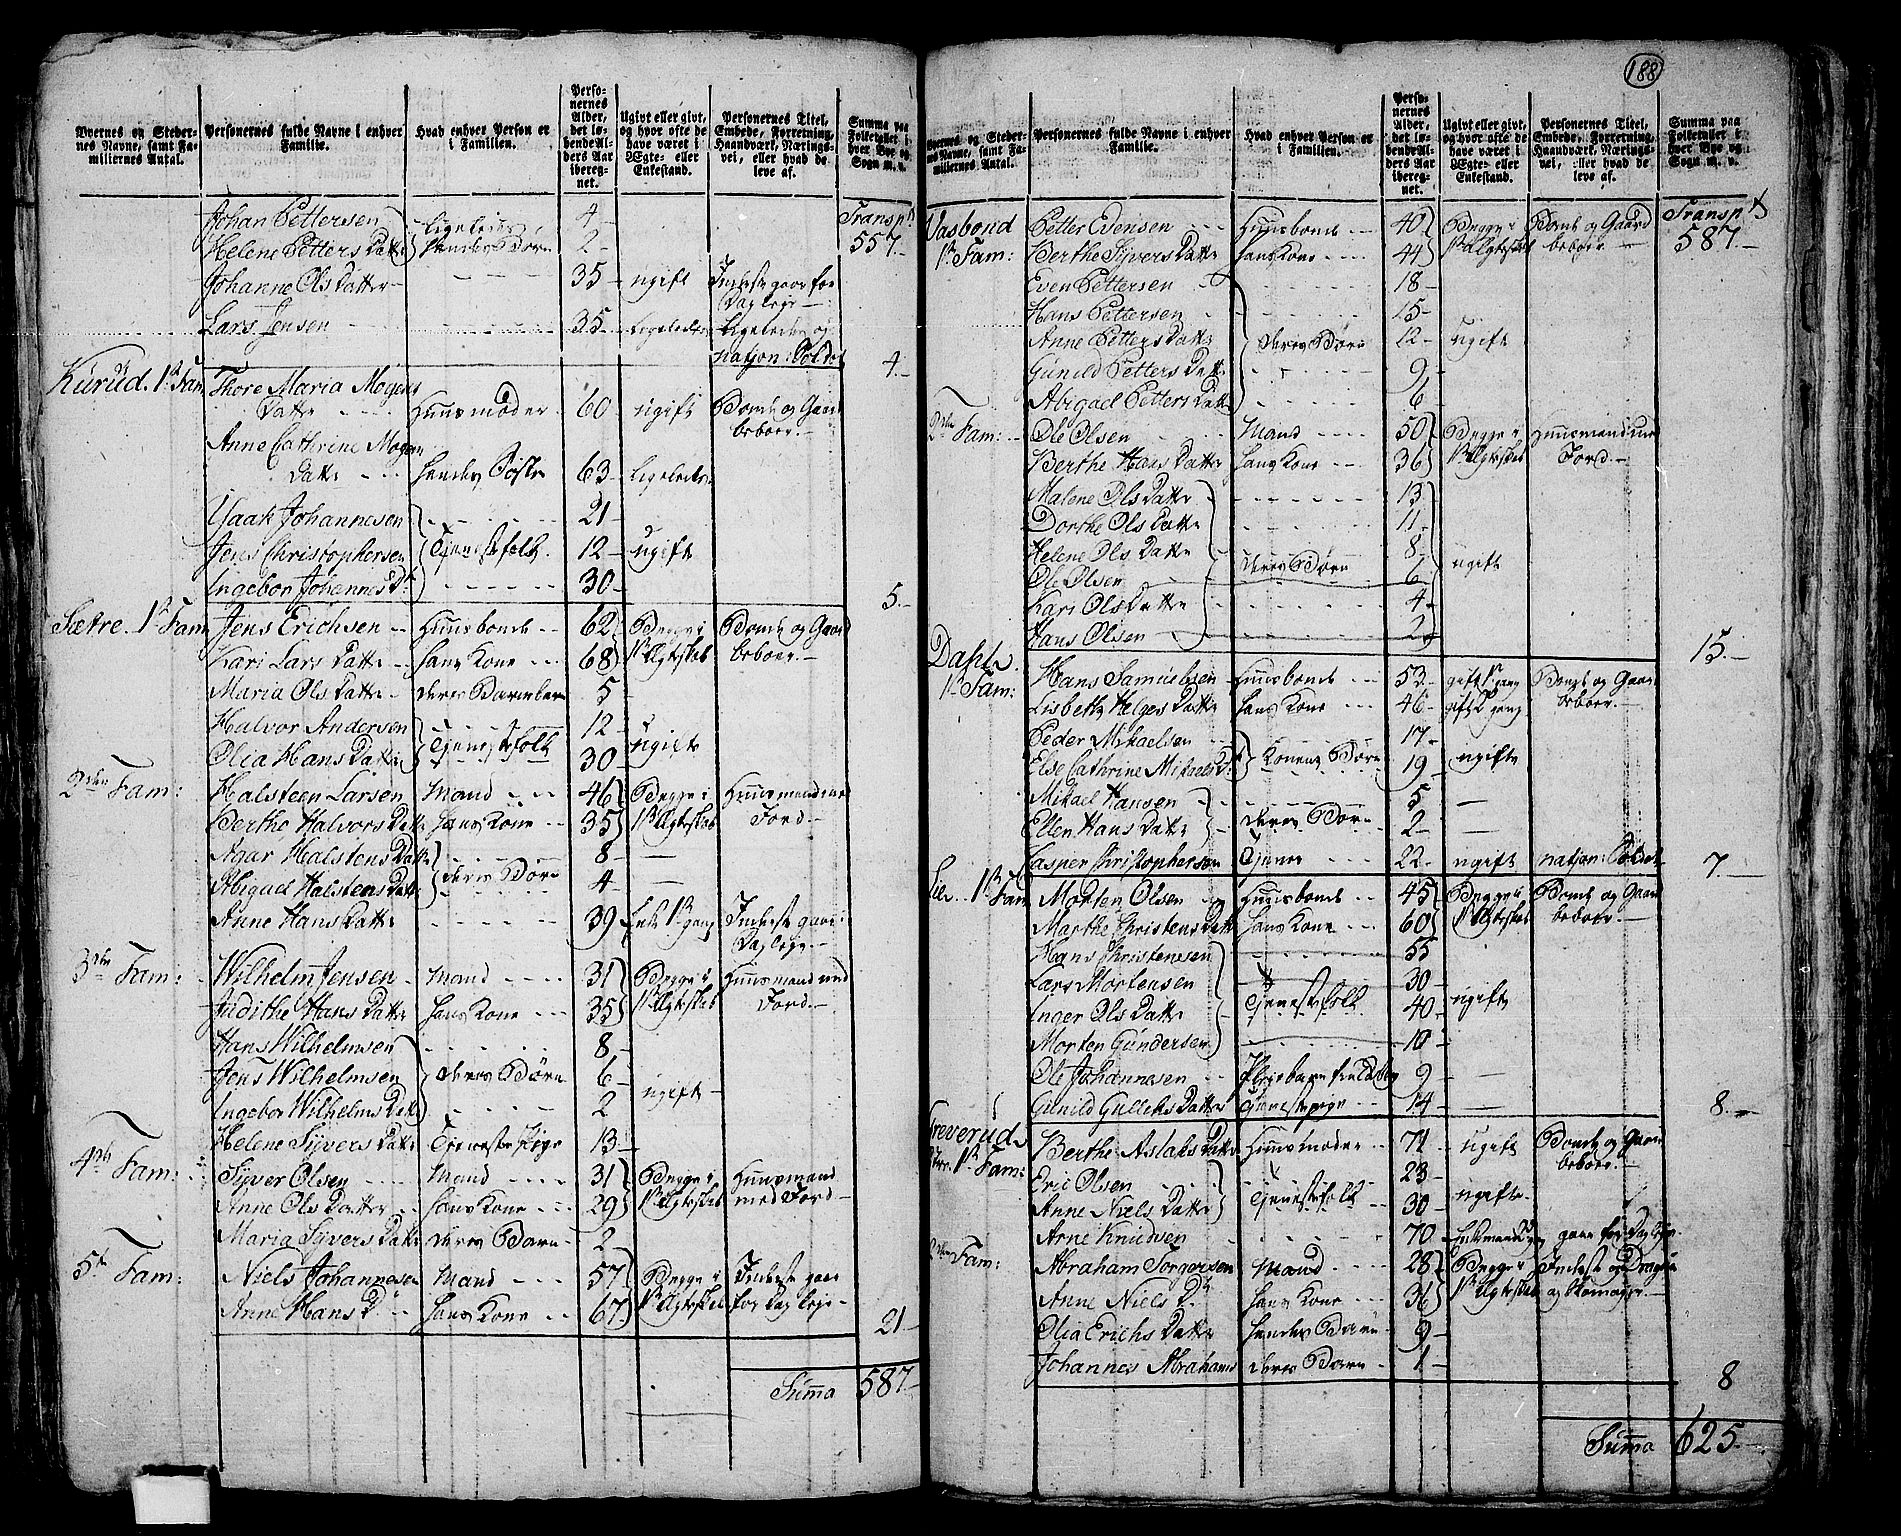 Byernes og Stedernes Navne, samt Familiernes Antal. | Personernes fulde Navne i enhver Familie. | Hvad enhver Person er i Familien. | Personernes Alder, det løbende Alders Aar iberegnet. | Ugivt eller givt, og hvor ofte de have været i Ægte- eller Enkestand. | Personernes Titel, Embede, Forretning, Haandværk, Næringsvei, eller hvad de leve af. | Summa paa Folketallet i hver Bye og Sogn m. v.
Johan Pettersen | ligeledes | 4 | Transpt
Helene Petters Datter | hendes Børn | 2 | 557
Johanne Ols Datter | 35 | ugift | Inderste gaar for Dagleje
Lars Jensen | 35 | ligeledes | ligeledes og
nation: Soldat | 4
Kurud. 1te Fam | Thore Maria Mogens
Datter | Huusmoder | 60 | ugift | Bonde og Gaard
beboer
Anne Cathrine Mogens
Datter | hendes Søster | 63 | ligeledes
Isaak Johannesen | 21
Jens Christophersen | Tjenestefolk | 12 | ugift
Ingebor Johannes Dr | 30 | 5
Sætre. 1te Fam | Jens Erichsen | Huusbonde | 62 | Begge i | Bonde og Gaard
Kari Lars Datter | hans Kone | 68 | 1te Ægteskab | beboer
Maria Ols Datter | deres Barnebarn | 5
Halvor Andersen | 12
Olia Hans Datter | Tjenestefolk | 30 | ugift
2den Fam: | Halsteen Larsen | Mand | 46 | Begge i | Huusmand med
Berthe Halvors Datter | hans Kone | 35 | 1te Ægteskab | Jord
Agar Halstens Datter | 8
Abigael Halstens Datter | deres Børn | 4
Anne Hans Datter | 39 | Enke 1te gang | Inderste gaar i
Dagleje
3die Fam: | Wilhelm Jensen | Mand | 31 | Begge i | Huusmand med
Judithe Hans Datter | hans Kone | 35 | 1te Ægteskab | Jord
Hans Wilhelmsen | 8
Jens Wilhelmsen | deres Børn | 6 | ugift
Ingebor Wilhelms Datter | 2
Helene Sijvers Datter | Tjeneste Pige | 13
4de Fam: | Sijver Olsen | Mand | 31 | Begge i | Huusmand
Anne Ols Datter | hans Kone | 29 | 1te Ægteskab | med Jord
Maria Sijvers Datter | deres Barn | 2
5te Fam: | Niels Johannesen | Mand | 57 | Begge i | Inderste gaar
Anne Hans Dr | hans Kone | 67 | 1te Ægteskab | for Dagleje | 21
Summa | 587
188
Byernes og Stedernes Navne, samt Familiernes Antal. | Personernes fulde Navne i enhver Familie. | Hvad enhver Person er i Familien. | Personernes Alder, det løbende Alders Aar iberegnet. | Ugivt eller givt, og hvor ofte de have været i Ægte- eller Enkestand. | Personernes Titel, Embede, Forretning, Haandværk, Næringsvei, eller hvad de leve af. | Summa paa Folketallet i hver Bye og Sogn m. v.
Vasbond | Petter Evensen | Huusbonde | 40 | Begge i | Bonde og Gaard | Transpt
1te Fam: | Berthe Sijvers Datter | hans Kone | 44 | 1te Ægteskab | beboer | 587
Even Pettersen | 18
Hans Pettersen | 15
Anne Petters Datter | deres Børn | 12 | ugift
Gunild Petters Datter | 9
Abigael Petters Datter | 6
2den Fam: | Ole Olsen | Mand | 50 | Begge i | Huusmand med
Berthe Hans Datter | hans Kone | 36 | 1te Ægteskab | Jord
Malene Ols Datter | 13
Dorthe Ols Datter | 11
Helene Ols Datter | 8
Ole Olsen | deres Børn | 6 | ugift
Kari Ols Datter | 4
Hans Olsen | 2 | 15
Dahle
1te Fam: | Hans Samuelsen | Huusbonde | 53 | gift 1te gang | Bonde og Gaard
Lisbeth Helges Datter | hans Kone | 46 | gift 2 gang | beboer
Peder Mikaelsen | 17
Else Cathrine Mikaels Dr | Konens Børn | 19 | ugift
Mikael Hansen | 5
Ellen Hans Datter | deres Børn | 2
Casper Christophersen | Tjener | 22 | ugift | nation: Soldat | 7
Lie. 1te Fam | Morten Olsen | Huusbonde | 45 | Begge i | Bonde og Gaard
Marthe Christens Datter | hans Kone | 60 | 1te Ægteskab | beboer
Hans Christensen | 55
Lars Mortensen | 30
Inger Ols Datter | Tjenestefolk | 40 | ugift
Morten Gundersen | 10
Ole Johannesen | 9
Gunild Gulleks Datter | Tjenestepige | 14 | 8
Greverud
1te Fam: | Berthe Aslaks Datter | Huusmoder | 71 | ugift | Bonde og Gaard
beboer
Eric Olsen | 23
Anne Niels Datter | Tjenestefolk | 30 | ugift
Arne Knudsen | 70 | gaar for Dagleje
2den Fam: | Abraham Torgersen | Mand | 28 | Begge i | Inderste og
Anne Niels Dr | hans Kone | 36 | 1te Ægteskab | og Skomager
Olia Erichs Datter | hendes Barn | 9
Johannes Abrahams | deres Barn | 1 | 8
Summa | 625